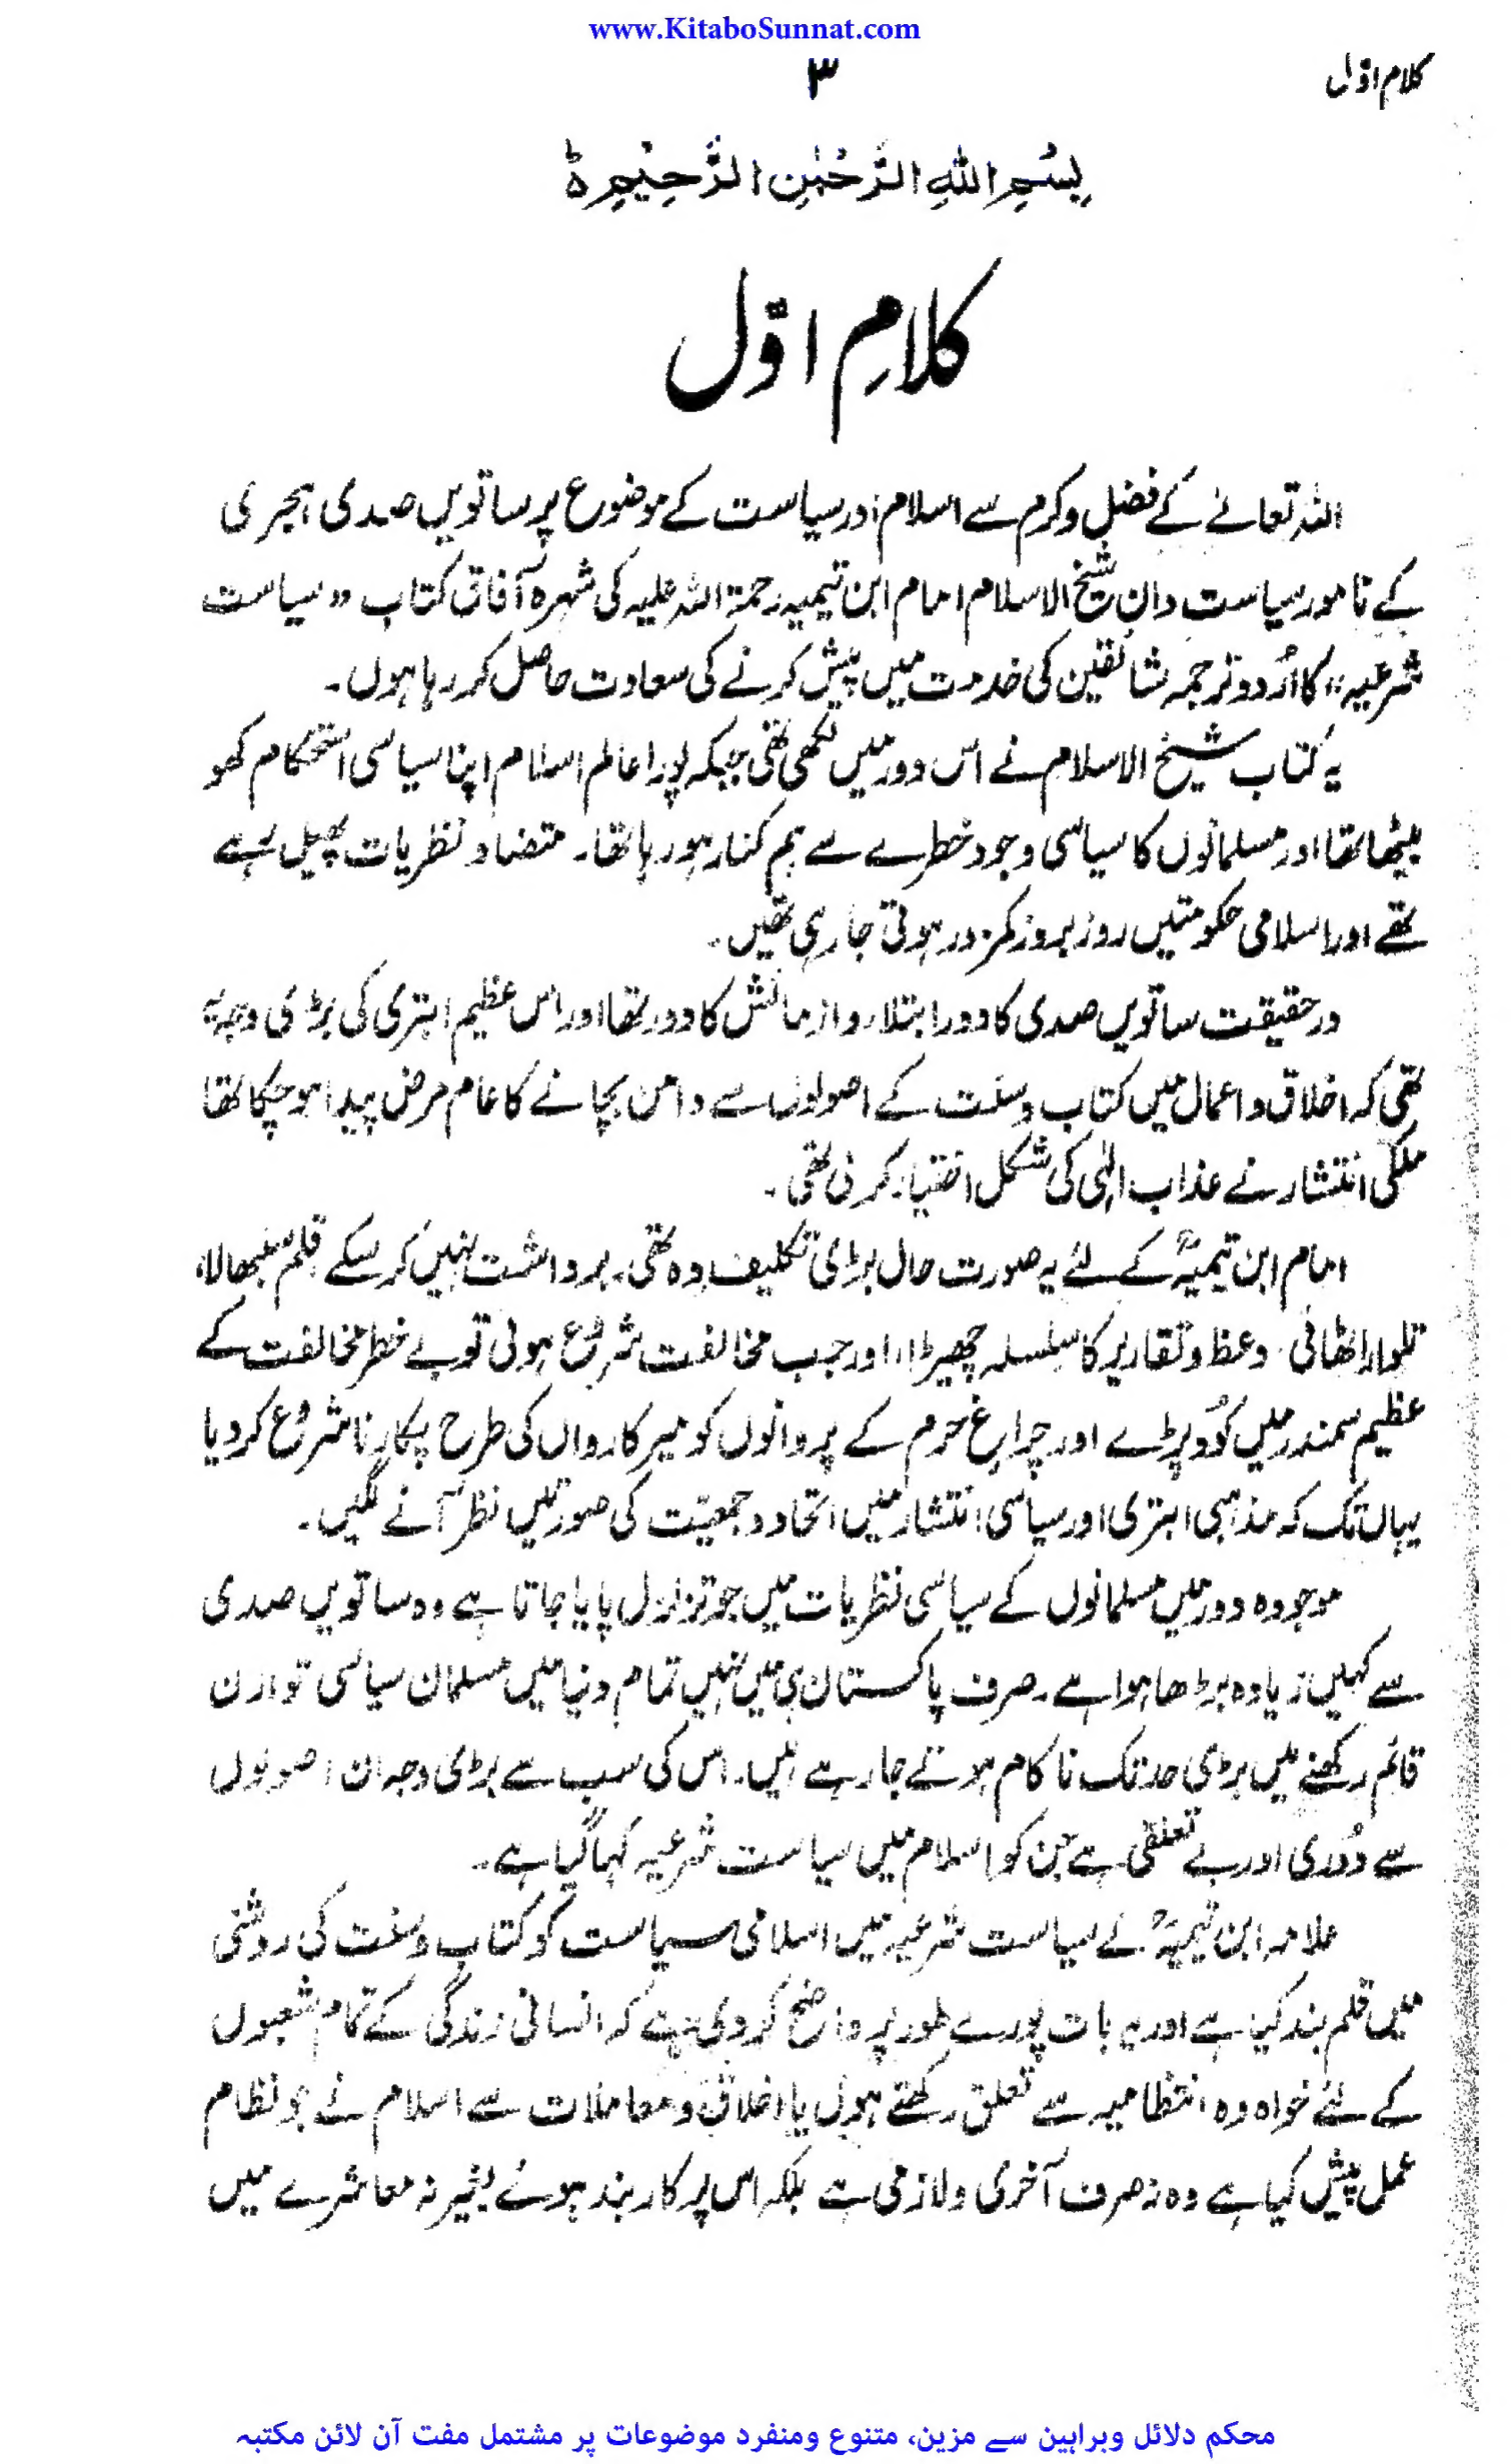 www.KitaboSunnat.com
کلام اوّل
۳
بِسْمِ اللّٰهِ الرَّحْمٰنِ الرَّحِيْمِ ط
کلامِ اوّل
اللہ تعالےٰ کے فضل وکرم سے اسلام اور سیاست کے موضوع پر ساتویں صدی ہجری
کے نامور سیاست دان شیخ الاسلام امام ابن تیمیہ رحمۃ اللہ علیہ کی شہرہ آفاق کتاب "سیاست
شرعیہ" کا اُردو ترجمہ شائقین کی خدمت میں پیش کرنے کی سعادت حاصل کر رہا ہوں۔
یہ کتاب شیخ الاسلام نے اس دور میں لکھی تھی جبکہ پورا عالم اسلام اپنا سیاسی استحکام کھو
بیٹھا تھا اور مسلمانوں کا سیاسی وجود خطرے سے ہم کنار ہو رہا تھا۔ متضاد نظریات پھیل رہے
تھے اور اسلامی حکومتیں روز بروز کمزور ہوتی جا رہی تھیں۔
در حقیقت ساتویں صدی کا دور ابتلاء و آزمائش کا دور تھا اور اس عظیم ابتری کی بڑی وجہ یہ
تھی کہ اخلاق و اعمال میں کتاب و سنت کے اصولوں سے دامن بچانے کا عام مرض پیدا ہو چکا تھا
ملکی انتشار نے عذاب الٰہی کی شکل اختیار کر لی تھی۔
امام ابن تیمیہؒ کے لئے یہ صورت حال بڑی تکلیف دہ تھی۔ برداشت نہیں کر سکے قلم سنبھالا،
تلوار اٹھائی۔ وعظ و تقاریر کا سلسلہ چھیڑا، اور جب مخالفت شروع ہوئی تو بے خطر مخالفت کے
عظیم سمندر میں کُود پڑے اور چراغِ حرم کے پروانوں کو میر کارواں کی طرح پکارنا شروع کر دیا
یہاں تک کہ مذہبی ابتری اور سیاسی انتشار میں اتحاد و جمعیّت کی صورتیں نظر آنے لگیں۔
موجودہ دور میں مسلمانوں کے سیاسی نظریات میں جو تزلزل پایا جاتا ہے وہ ساتویں صدی
سے کہیں زیادہ بڑھا ہوا ہے۔ صرف پاکستان ہی میں نہیں تمام دنیا میں مسلمان سیاسی توازن
قائم رکھنے میں بڑی حد تک ناکام ہوتے جا رہے ہیں۔ اس کی سب سے بڑی وجہ ان اصولوں
سے دُوری اور بے تعلقی ہے جن کو اسلام میں سیاست شرعیہ کہا گیا ہے۔
علامہ ابن تیمیہؒ نے سیاست شرعیہ میں اسلامی سیاست کو کتاب و سنت کی روشنی
میں قلم بند کیا ہے اور یہ بات پورے طور پر واضح کر دی ہے کہ انسانی زندگی کے تمام شعبوں
کے لئے خواہ وہ انتظامیہ سے تعلق رکھتے ہوں یا اخلاق و معاملات سے اسلام نے جو نظام
عمل پیش کیا ہے وہ نہ صرف آخری و لازمی ہے بلکہ اس پر کاربند ہوئے بغیر نہ معاشرے میں
محکم دلائل وبراہین سے مزین، متنوع ومنفرد موضوعات پر مشتمل مفت آن لائن مکتبہ